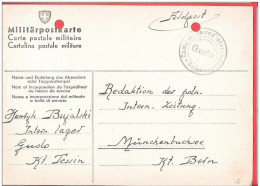 Feldpost
Militärpostkarte
Carte postale militaire
Cartolina postale militare
Gudo
Name und Einteilung des Absenders
oder Truppenstempel
Nom et incorporation de l'expéditeur
ou timbre du service
Nome e incorporazione del mittente
o bollo di servizio
Henryk Bujalski
Intern. lager
Gudo
Kt. Tessin
Redaktion der poln.
Intern. Zeitung.
Münchenbuchsee
Kt. Bern